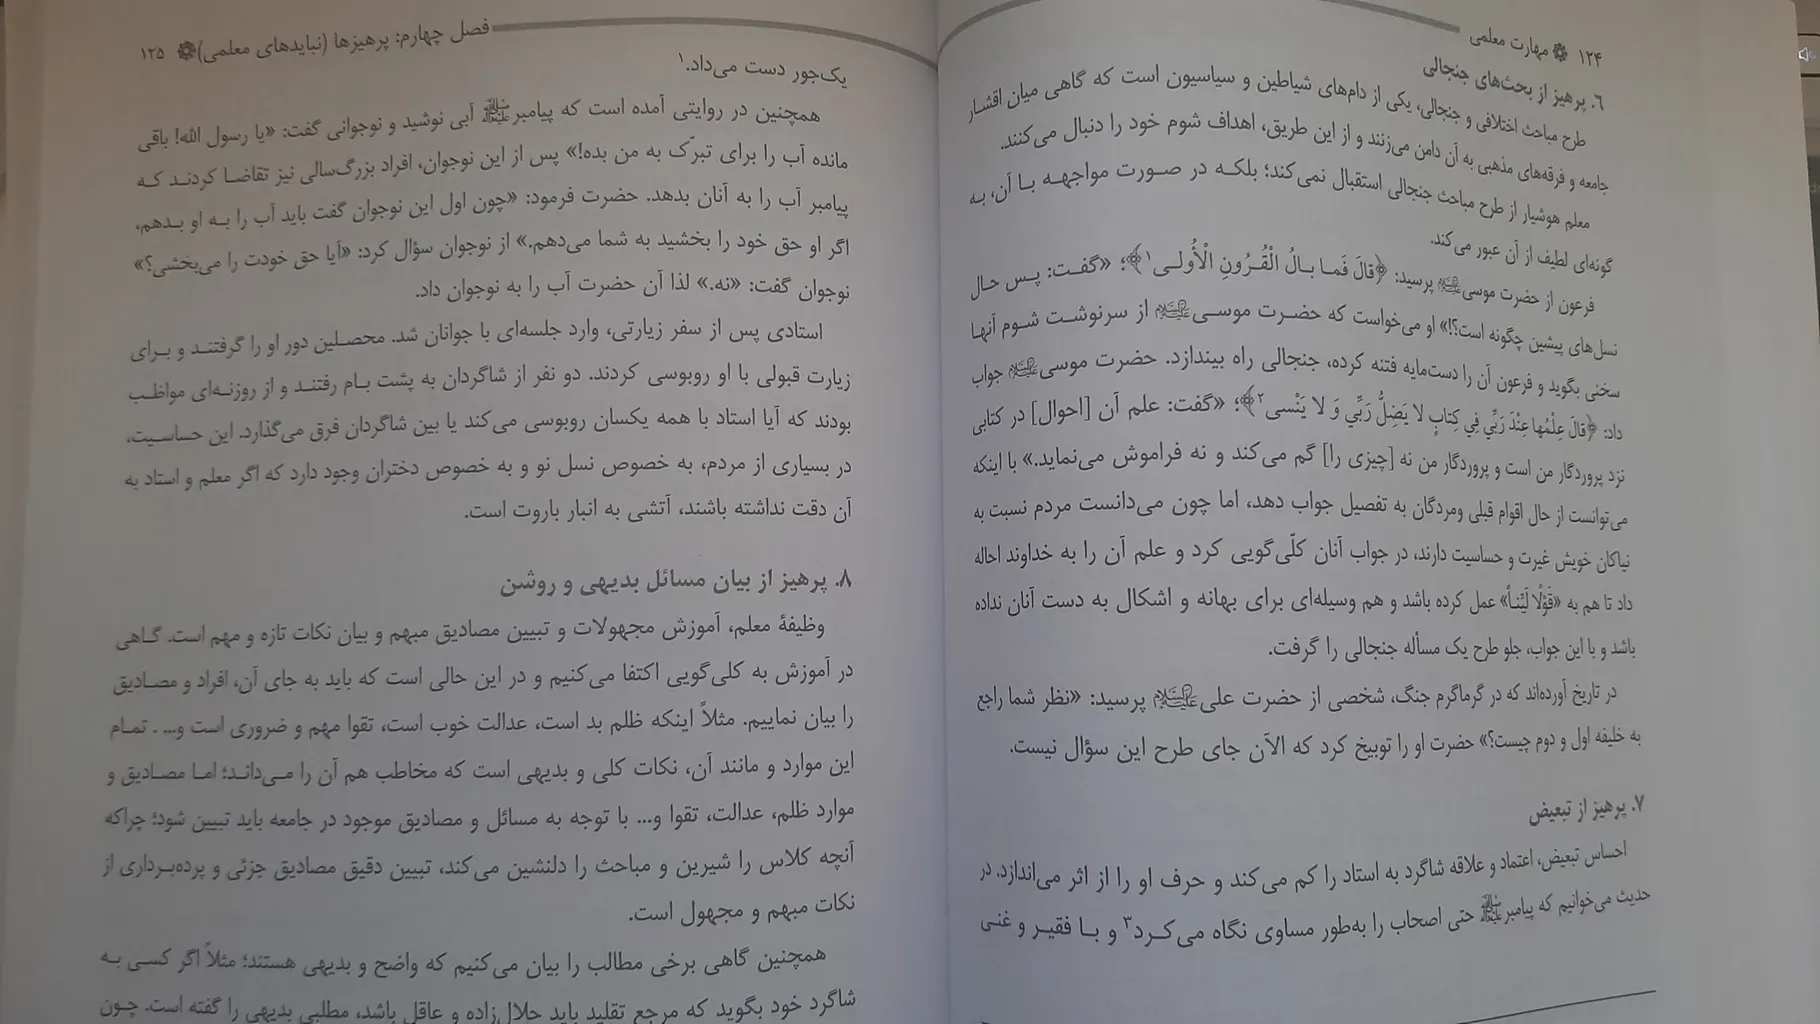 ۱۲۴ مهارت معلمی
۶. پرهیز از بحث‌های جنجالی
طرح مباحث اختلافی و جنجالی، یکی از دام‌های شیاطین و سیاسیون است که گاهی میان اقشار
جامعه و فرقه‌های مذهبی به آن دامن می‌زنند و از این طریق، اهداف شوم خود را دنبال می‌کنند.
معلم هوشیار از طرح مباحث جنجالی استقبال نمی‌کند؛ بلکه در صورت مواجهه با آن، به
گونه‌ای لطیف از آن عبور می‌کند.
فرعون از حضرت موسی علیه‌السلام پرسید: ﴿قالَ فَما بالُ الْقُرُونِ الْأُولی۱﴾؛ «گفت: پس حال
نسل‌های پیشین چگونه است؟!» او می‌خواست که حضرت موسی علیه‌السلام از سرنوشت شوم آنها
سخنی بگوید و فرعون آن را دست‌مایه فتنه کرده، جنجالی راه بیندازد. حضرت موسی علیه‌السلام جواب
داد: ﴿قالَ عِلْمُها عِنْدَ رَبِّي فِي كِتابٍ لا يَضِلُّ رَبِّي وَ لا يَنْسی۲﴾؛ «گفت: علم آن [احوال] در کتابی
نزد پروردگار من است و پروردگار من نه [چیزی را] گم می‌کند و نه فراموش می‌نماید.» با اینکه
می‌توانست از حال اقوام قبلی ومردگان به تفصیل جواب دهد، اما چون می‌دانست مردم نسبت به
نیاکان خویش غیرت و حساسیت دارند، در جواب آنان کلّی‌گویی کرد و علم آن را به خداوند احاله
داد تا هم به «قَوْلًا لَيِّناً» عمل کرده باشد و هم وسیله‌ای برای بهانه و اشکال به دست آنان نداده
باشد و با این جواب، جلو طرح یک مسأله جنجالی را گرفت.
در تاریخ آورده‌اند که در گرماگرم جنگ، شخصی از حضرت علی علیه‌السلام پرسید: «نظر شما راجع
به خلیفه اول و دوم چیست؟» حضرت او را توبیخ کرد که الآن جای طرح این سؤال نیست.
۷. پرهیز از تبعیض
احساس تبعیض، اعتماد و علاقه شاگرد به استاد را کم می‌کند و حرف او را از اثر می‌اندازد. در
حدیث می‌خوانیم که پیامبر ﷺ حتی اصحاب را به‌طور مساوی نگاه می‌کرد۳ و با فقیر و غنی
فصل چهارم: پرهیزها (نبایدهای معلمی) ۱۲۵
یک‌جور دست می‌داد.۱
همچنین در روایتی آمده است که پیامبر ﷺ آبی نوشید و نوجوانی گفت: «یا رسول الله! باقی
مانده آب را برای تبرّک به من بده!» پس از این نوجوان، افراد بزرگ‌سالی نیز تقاضا کردند که
پیامبر آب را به آنان بدهد. حضرت فرمود: «چون اول این نوجوان گفت باید آب را به او بدهم،
اگر او حق خود را بخشید به شما می‌دهم.» از نوجوان سؤال کرد: «آیا حق خودت را می‌بخشی؟»
نوجوان گفت: «نه.» لذا آن حضرت آب را به نوجوان داد.
استادی پس از سفر زیارتی، وارد جلسه‌ای با جوانان شد. محصلین دور او را گرفتند و برای
زیارت قبولی با او روبوسی کردند. دو نفر از شاگردان به پشت بام رفتند و از روزنه‌ای مواظب
بودند که آیا استاد با همه یکسان روبوسی می‌کند یا بین شاگردان فرق می‌گذارد. این حساسیت،
در بسیاری از مردم، به خصوص نسل نو و به خصوص دختران وجود دارد که اگر معلم و استاد به
آن دقت نداشته باشند، آتشی به انبار باروت است.
۸. پرهیز از بیان مسائل بدیهی و روشن
وظیفهٔ معلم، آموزش مجهولات و تبیین مصادیق مبهم و بیان نکات تازه و مهم است. گاهی
در آموزش به کلی‌گویی اکتفا می‌کنیم و در این حالی است که باید به جای آن، افراد و مصادیق
را بیان نماییم. مثلاً اینکه ظلم بد است، عدالت خوب است، تقوا مهم و ضروری است و... . تمام
این موارد و مانند آن، نکات کلی و بدیهی است که مخاطب هم آن را می‌داند؛ اما مصادیق و
موارد ظلم، عدالت، تقوا و... با توجه به مسائل و مصادیق موجود در جامعه باید تبیین شود؛ چراکه
آنچه کلاس را شیرین و مباحث را دلنشین می‌کند، تبیین دقیق مصادیق جزئی و پرده‌برداری از
نکات مبهم و مجهول است.
همچنین گاهی برخی مطالب را بیان می‌کنیم که واضح و بدیهی هستند؛ مثلاً اگر کسی به
شاگرد خود بگوید که مرجع تقلید باید حلال‌زاده و عاقل باشد، مطلبی بدیهی را گفته است. چون